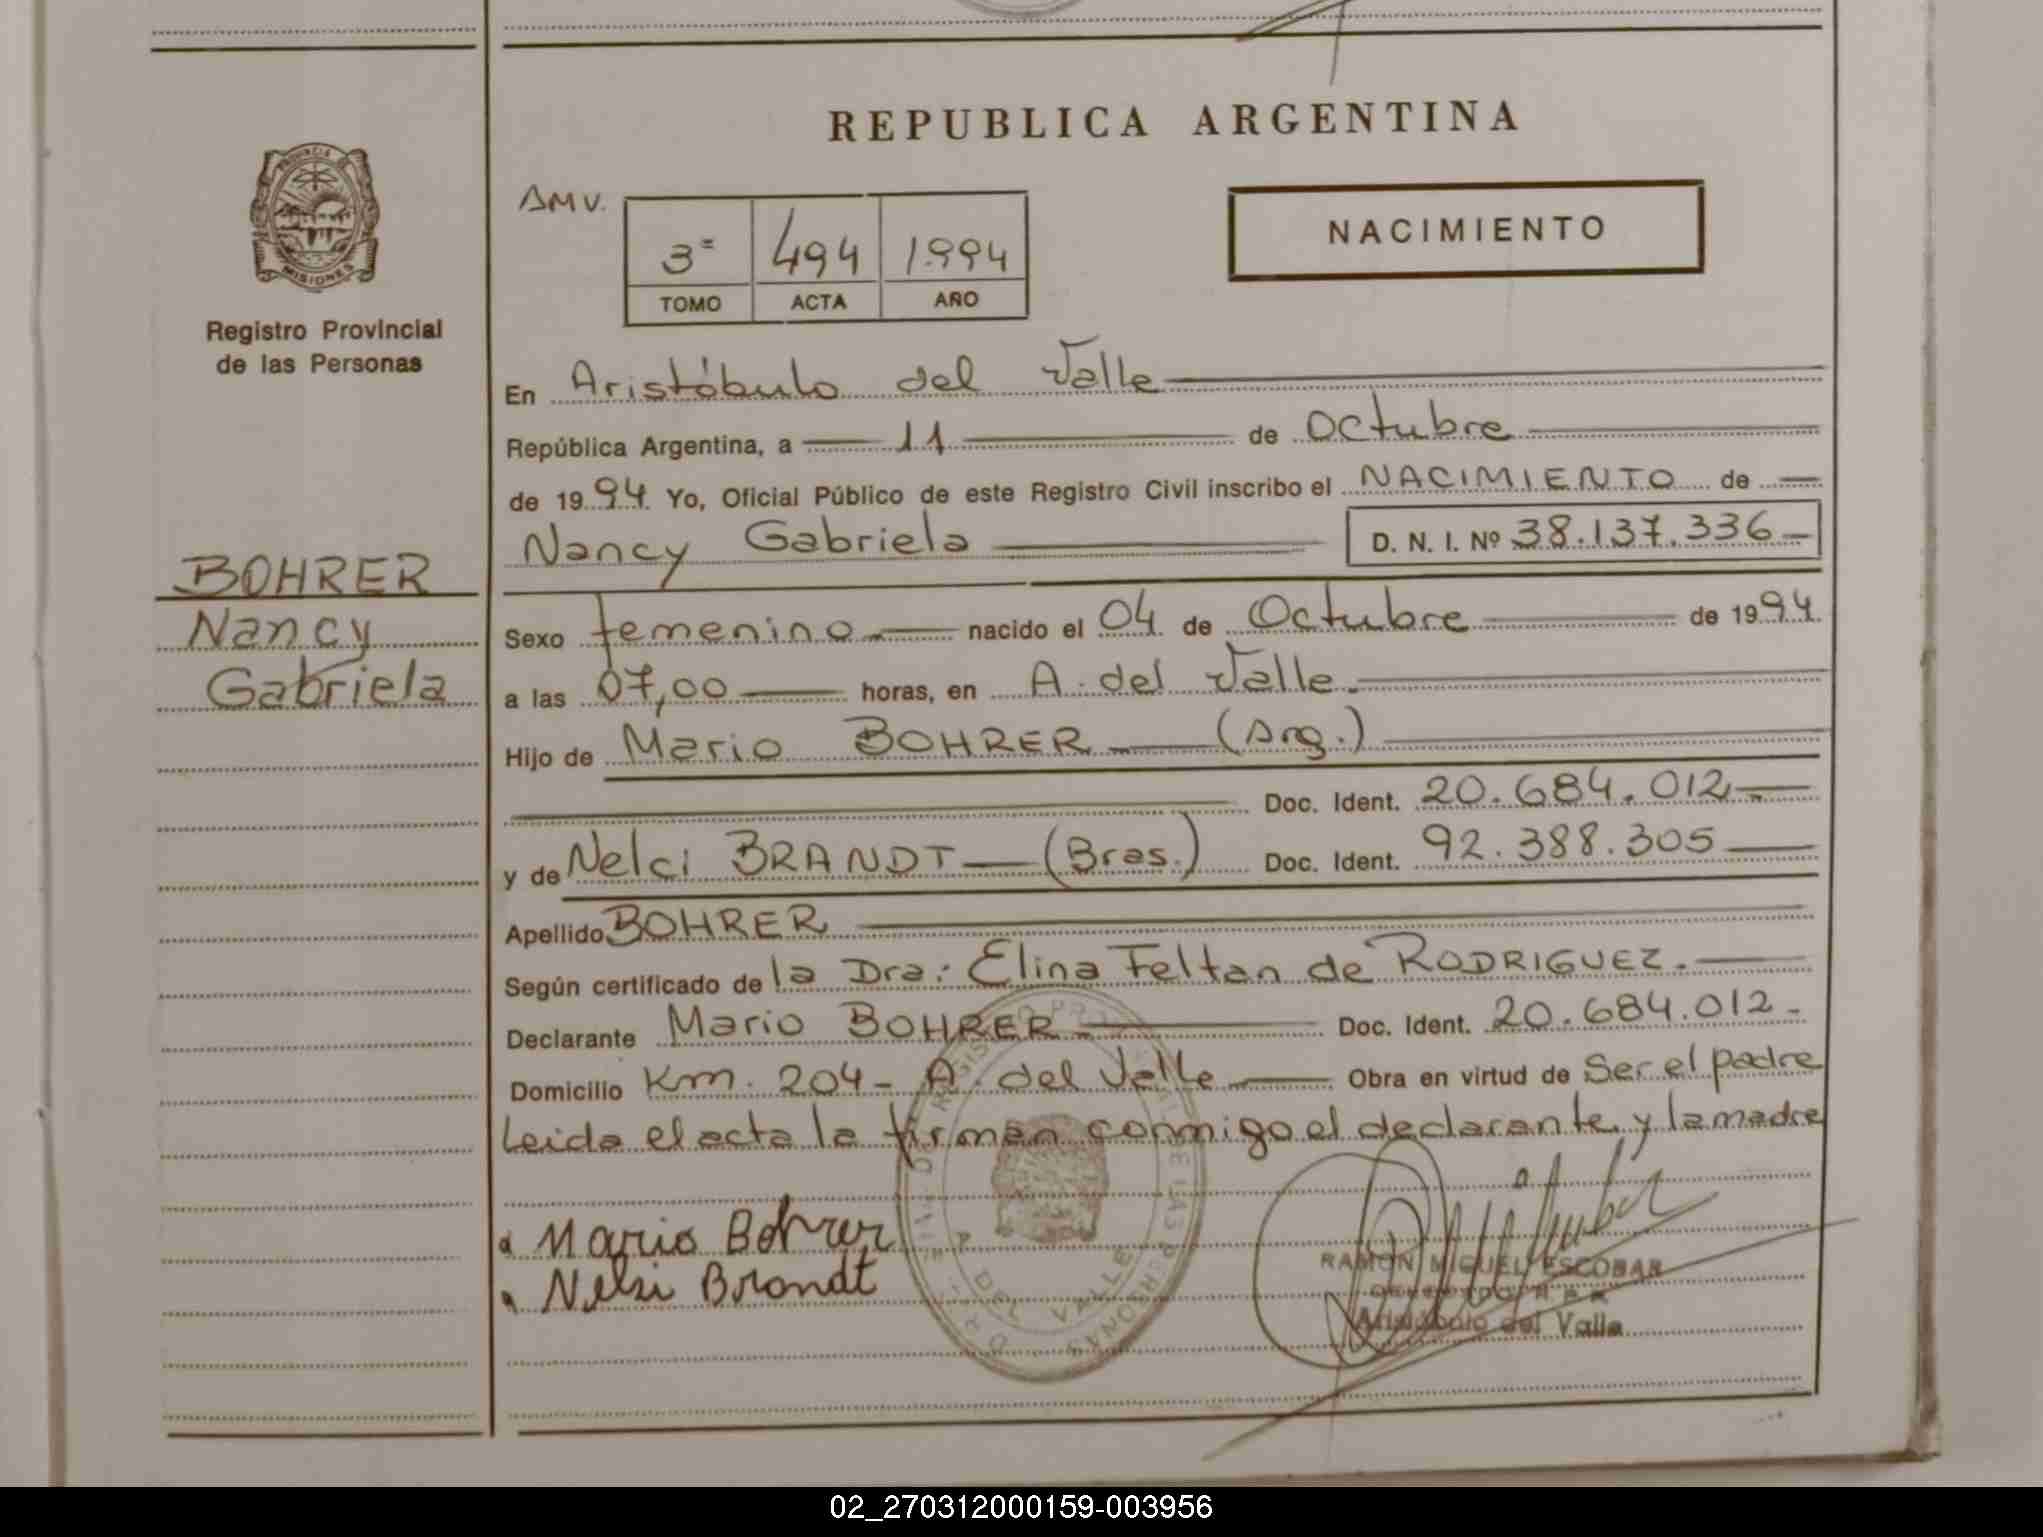 REPUBLICA ARGENTINA
PROVINCIA DE
MISIONES
Registro Provincial
de las Personas
AMV.
3º 494 1.994
TOMO ACTA AÑO
NACIMIENTO
En Aristóbulo del Valle
República Argentina, a 11 de Octubre
de 1994. Yo, Oficial Público de este Registro Civil inscribo el NACIMIENTO de
Nancy Gabriela D. N. I. Nº 38.137.336
BOHRER
Nancy
Gabriela
Sexo femenino nacido el 04 de Octubre de 1994
a las 07,00 horas, en A. del Valle.
Hijo de Mario BOHRER (Arg.)
Doc. Ident. 20.684.012
y de Nelci BRANDT (Bras.) Doc. Ident. 92.388.305
Apellido BOHRER
Según certificado de la Dra: Elina Feltan de RODRIGUEZ.
Declarante Mario BOHRER Doc. Ident. 20.684.012-
Domicilio Km. 204- A. del Valle Obra en virtud de Ser el padre
Leida el acta la firman conmigo el declarante y la madre
Mario Bohrer
Nelsi Brandt
A. DEL VALLE
RAMON MIGUEL ESCOBAR
Aristóbulo del Valle
02_270312000159-003956